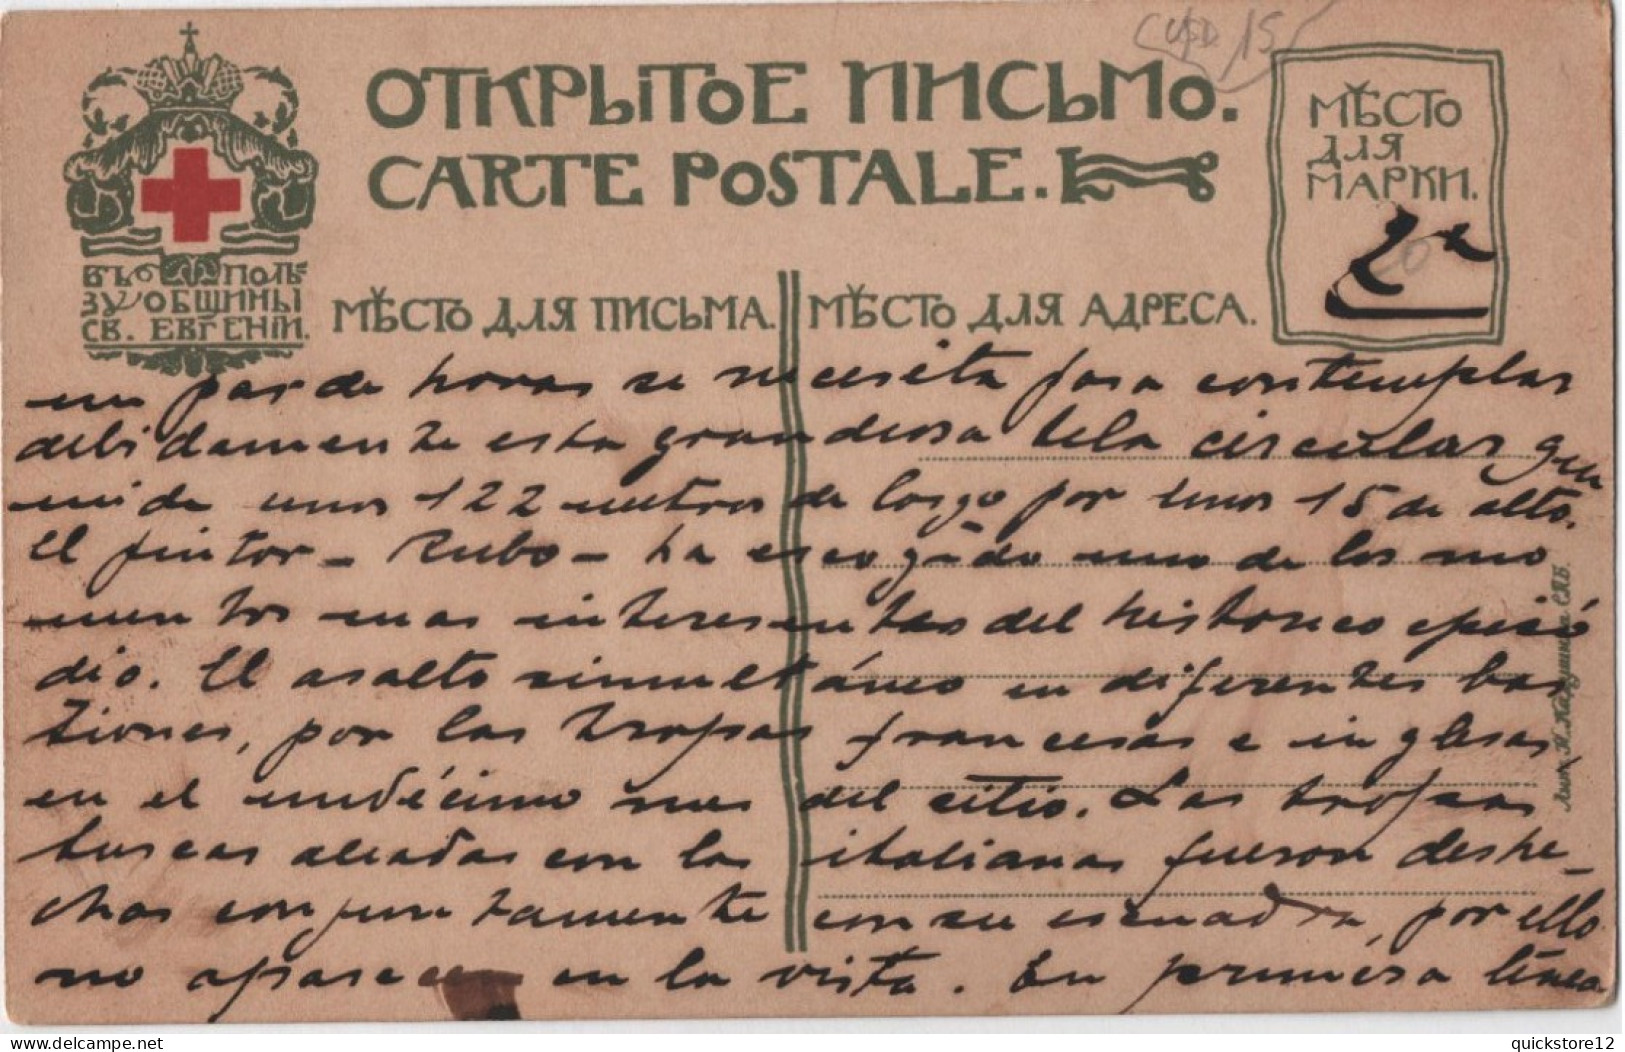 USD 15
ОТКРЫТОЕ ПИСЬМО.
CARTE POSTALE.
МѢСТО
ДЛЯ
МАРКИ.
2a
20
ВЪ ПОЛЬ=
ЗУ ОБЩИНЫ
СВ. ЕВГЕНІИ.
МѢСТО ДЛЯ ПИСЬМА.
МѢСТО ДЛЯ АДРЕСА.
un par de horas se necesita para contemplar
debidamente esta grandiosa tela circular que
mide unos 122 metros de largo por unos 15 de alto.
El pintor - Rubo - ha escogido uno de los mo
mentos mas interesantes del historico episó
dio. El asalto simultáneo en diferentes bas
tiones, por las tropas francesas e inglesas
en el undécimo mes del sitio. Las tropas
turcas aliadas con las italianas fueron deshe-
chas conjuntamente con su escuadra, por ello
no aparecen en la vista. En primera línea
Лит. Н. Кадушина СПБ.
quickstore12